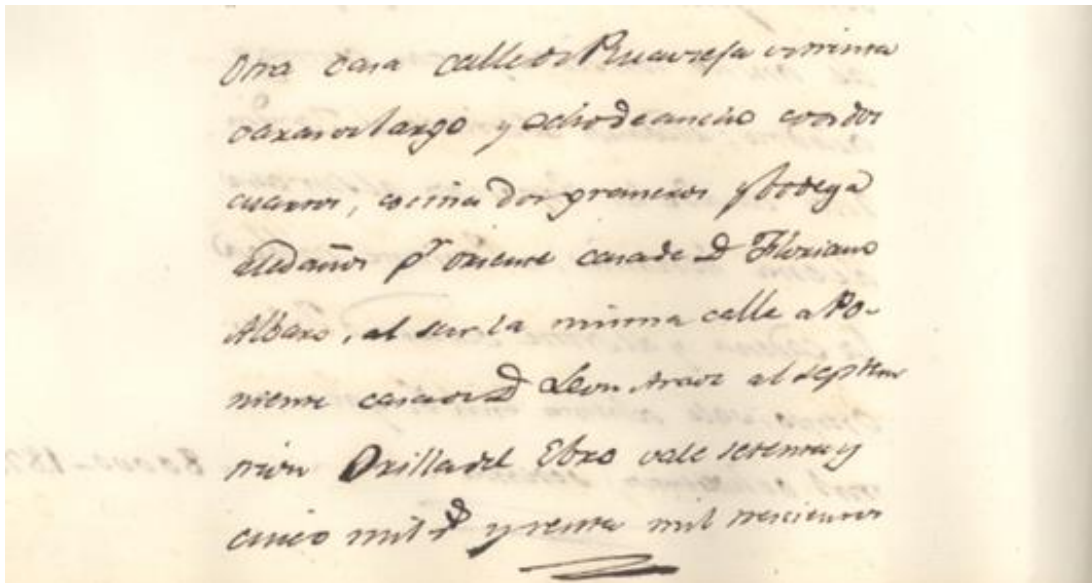 Otra casa calle de Ruavieja de treinta
baras de largo y ocho de ancho con dos
cuartos, cocina dos graneros y bodega
Aledaños pr oriente casa de D Floriano
Albaro, al sur la misma calle a Po-
niente casa de D Leon Araoz al Septen
trion Orilla del Ebro vale setenta y
cinco mil rs y renta mil trescientos